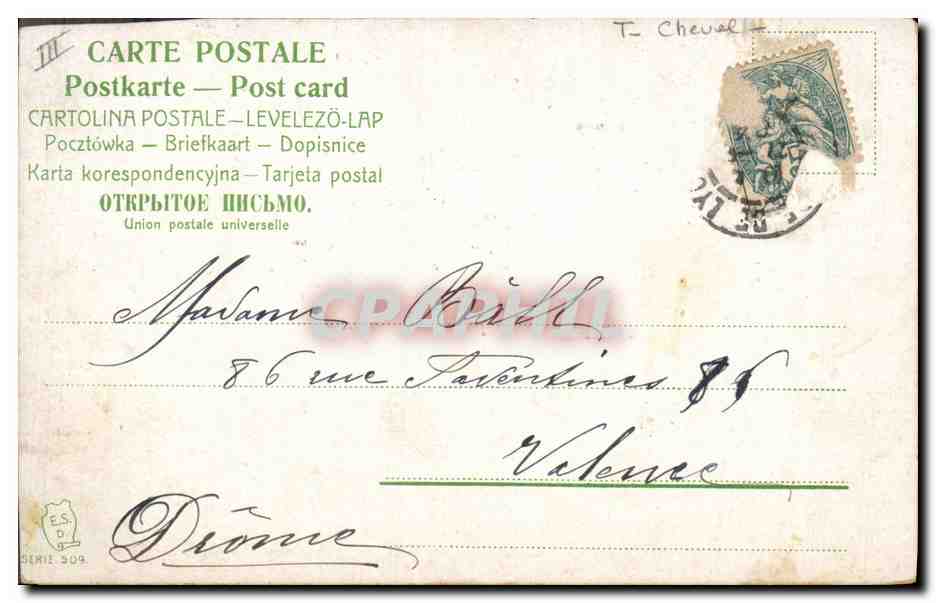 III
T- Cheval -
CARTE POSTALE
Postkarte — Post card
CARTOLINA POSTALE — LEVELEZÖ-LAP
Pocztówka — Briefkaart — Dopisnice
Karta korespondencyjna — Tarjeta postal
ОТКРЫТОЕ ПИСЬМО.
Union postale universelle
RE LYO
Madame Bâll
CPAPHIL
86 rue Faventines 86
Valence
Drôme
E.S.
D
SERIE 509.